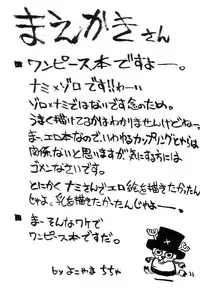 まえがきさん
■ワンピース本ですよー。
ナミ×ゾロです!!わーい
ゾロ×ナミではないです念のため。
うまく描けてるかはわかりませんけどねー。
まー、エロ本なので、いわゆるカップリングとからは
関係ないと思いますが気にする方には
ゴメンなさいです。
とにかくナミさんでエロ絵を描きたかったん
じゃよ。絵を描きたかったんじゃよー。
■まーそんなワケで
ワンピース本ですだ。
by よこやま ちちゃ